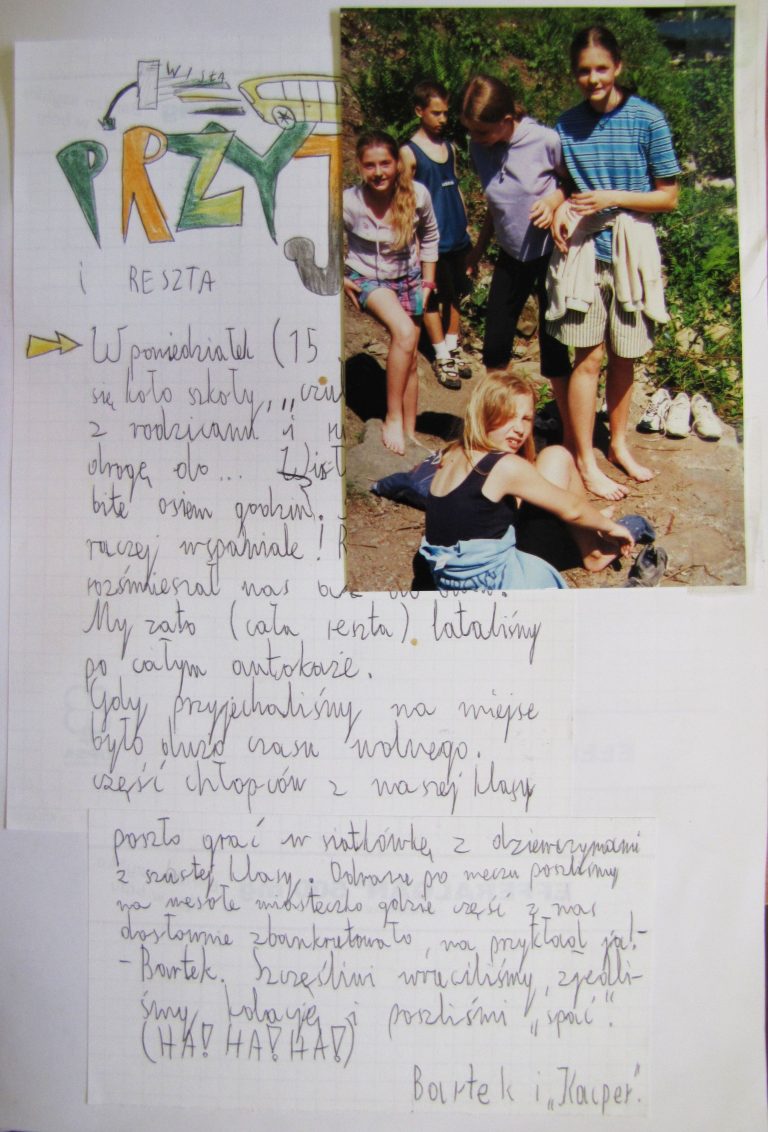 WISŁA
PRZYJ
i RESZTA
W poniedziałek (15
się koło szkoły, „czu
z rodzicami i
drogę do... Wisł
bite osiem godzin.
raczej wspaniale!
rozśmieszał nas
My zato (cała reszta) lataliśmy
po całym autokaże.
Gdy przyjechaliśmy na miejse
było dużo czasu wolnego.
część chłopców z naszej klasy
poszło grać w siatkówkę z dziewczynami
z szustej klasy. Odrazu po meczu poszliśmy
na wesołe miasteczko gdzie część z nas
dosłownie zbankrutowało, na przykład ja!-
- Bartek. Szczęśliwi wróciliśmy, zjedli-
śmy kolację i poszliśmi „spać".
(HA! HA! HA!)
Bartek i „Kacper"